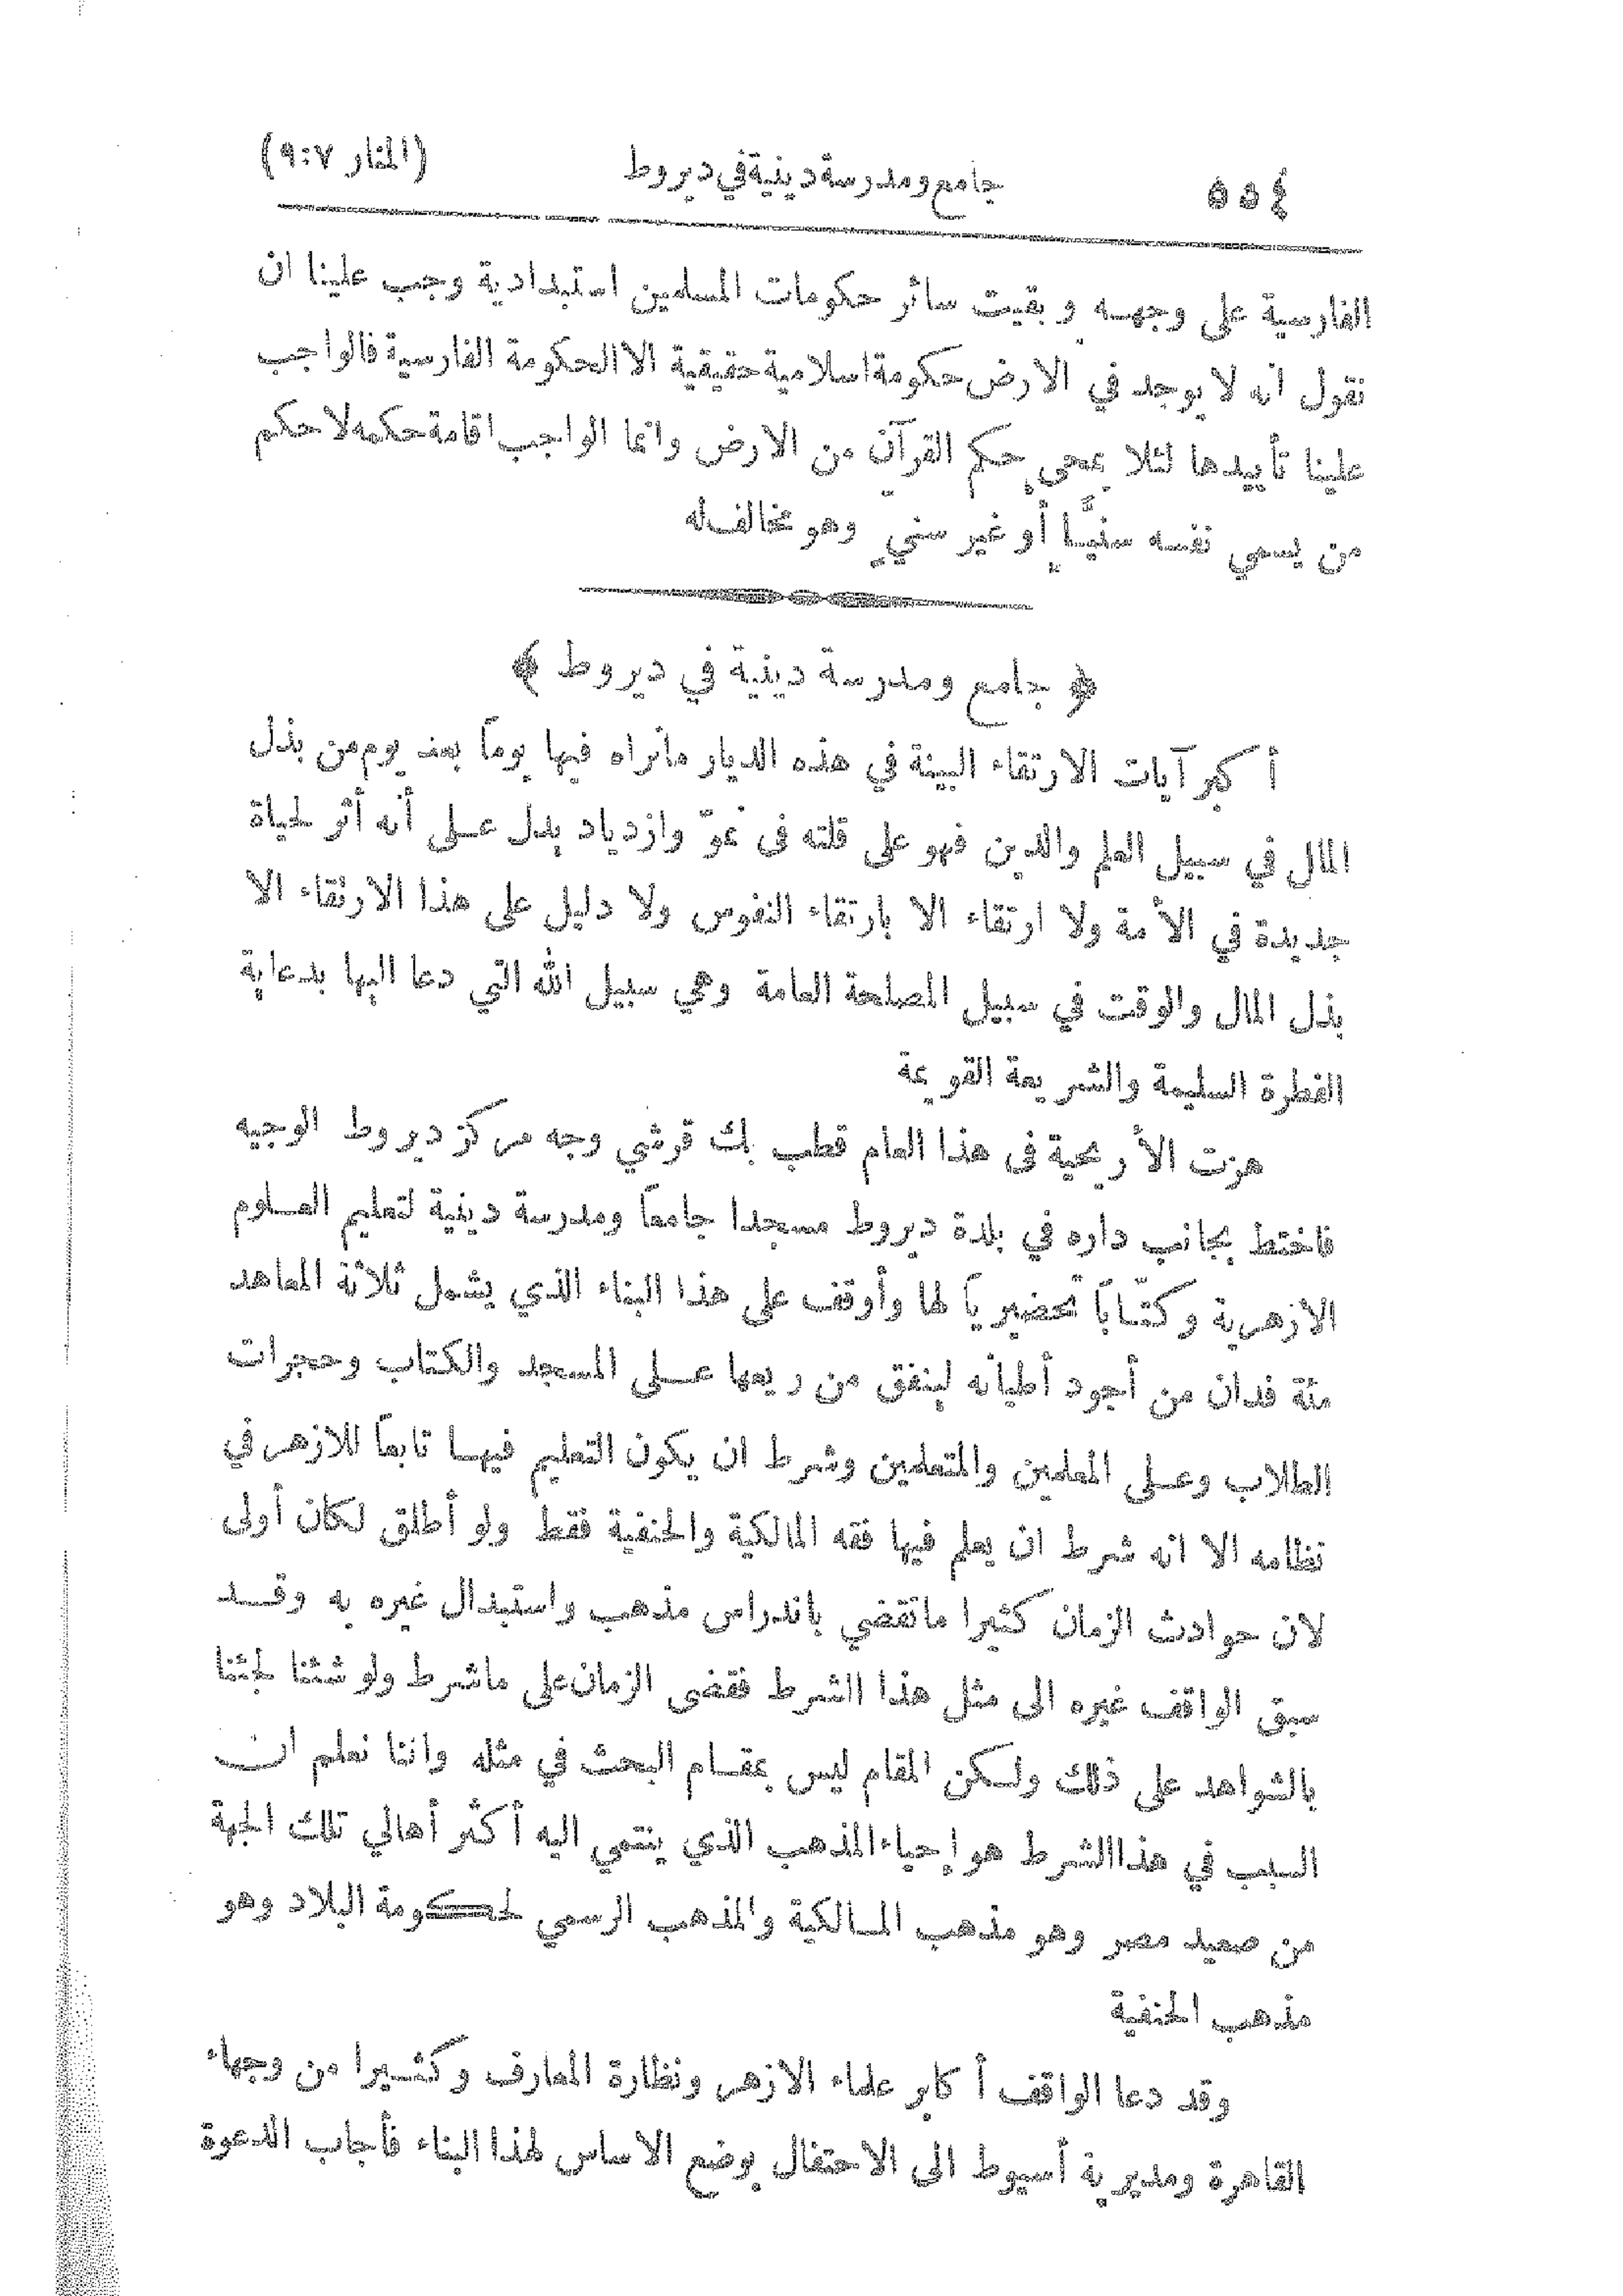 ٥٥٤ جامع ومدرسة دينية في ديروط (المنار ٩:٧)
الفارسية على وجهه وبقيت سائر حكومات المسلمين استبدادية وجب علينا ان
نقول انه لا يوجد في الارض حكومة اسلامية حقيقية الا الحكومة الفارسية فالواجب
علينا تأييدها لئلا يمحى حكم القرآن من الارض وانما الواجب اقامة حكمه لا حكم
من يسمي نفسه سنيًّا أو غير سني وهو مخالف له
﴿ جامع ومدرسة دينية في ديروط ﴾
أكبر آيات الارتقاء البينة في هذه الديار مانراه فيها يوماً بعد يوم من بذل
المال في سبيل العلم والدين فهو على قلته في نموّ وازدياد يدل عـلى أنه أثر لحياة
جديدة في الأمة ولا ارتقاء الا بارتقاء النفوس ولا دليل على هذا الارتقاء الا
بذل المال والوقت في سبيل المصلحة العامة وهي سبيل الله التي دعا اليها بدعاية
الفطرة السليمة والشريعة القويمة
هزت الأريحية في هذا العام قطب بك قرشي وجه مركز ديروط الوجيه
فاختط بجانب داره في بلدة ديروط مسجدا جامعاً ومدرسة دينية لتعليم العـلوم
الازهرية وكتّاباً تحضيرياً لها وأوقف على هذا البناء الذي يشمل ثلاثة المعاهد
مئة فدان من أجود أطيانه لينفق من ريعها عـلى المسجد والكتاب وحجرات
الطلاب وعـلى المعلمين والمتعلمين وشرط ان يكون التعليم فيهـا تابعاً للازهر في
نظامه الا انه شرط ان يعلم فيها فقه المالكية والحنفية فقط ولو أطلق لكان أولى
لان حوادث الزمان كثيرا ماتقضي باندراس مذهب واستبدال غيره به وقـد
سبق الواقف غيره الى مثل هذا الشرط فقضى الزمان على ماشرط ولو شئنا لجئنا
بالشواهد على ذلك ولـكن المقام ليس بمقـام البحث في مثله واننا نعلم ان
السبب في هذا الشرط هو إحياء المذهب الذي ينتمي اليه أكثر أهالي تلك الجهة
من صعيد مصر وهو مذهب المـالكية والمذهب الرسمي لحكومة البلاد وهو
مذهب الحنفية
وقد دعا الواقف أكابر علماء الازهر ونظارة المعارف وكثـيرا من وجهاء
القاهرة ومديرية أسيوط الى الاحتفال بوضع الاساس لهذا البناء فأجاب الدعوة